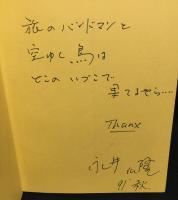 旅のバンドマンと
空ゆく鳥は
どこのいづこで
果てるやら....
Thanx
永井 隆
91' 秋